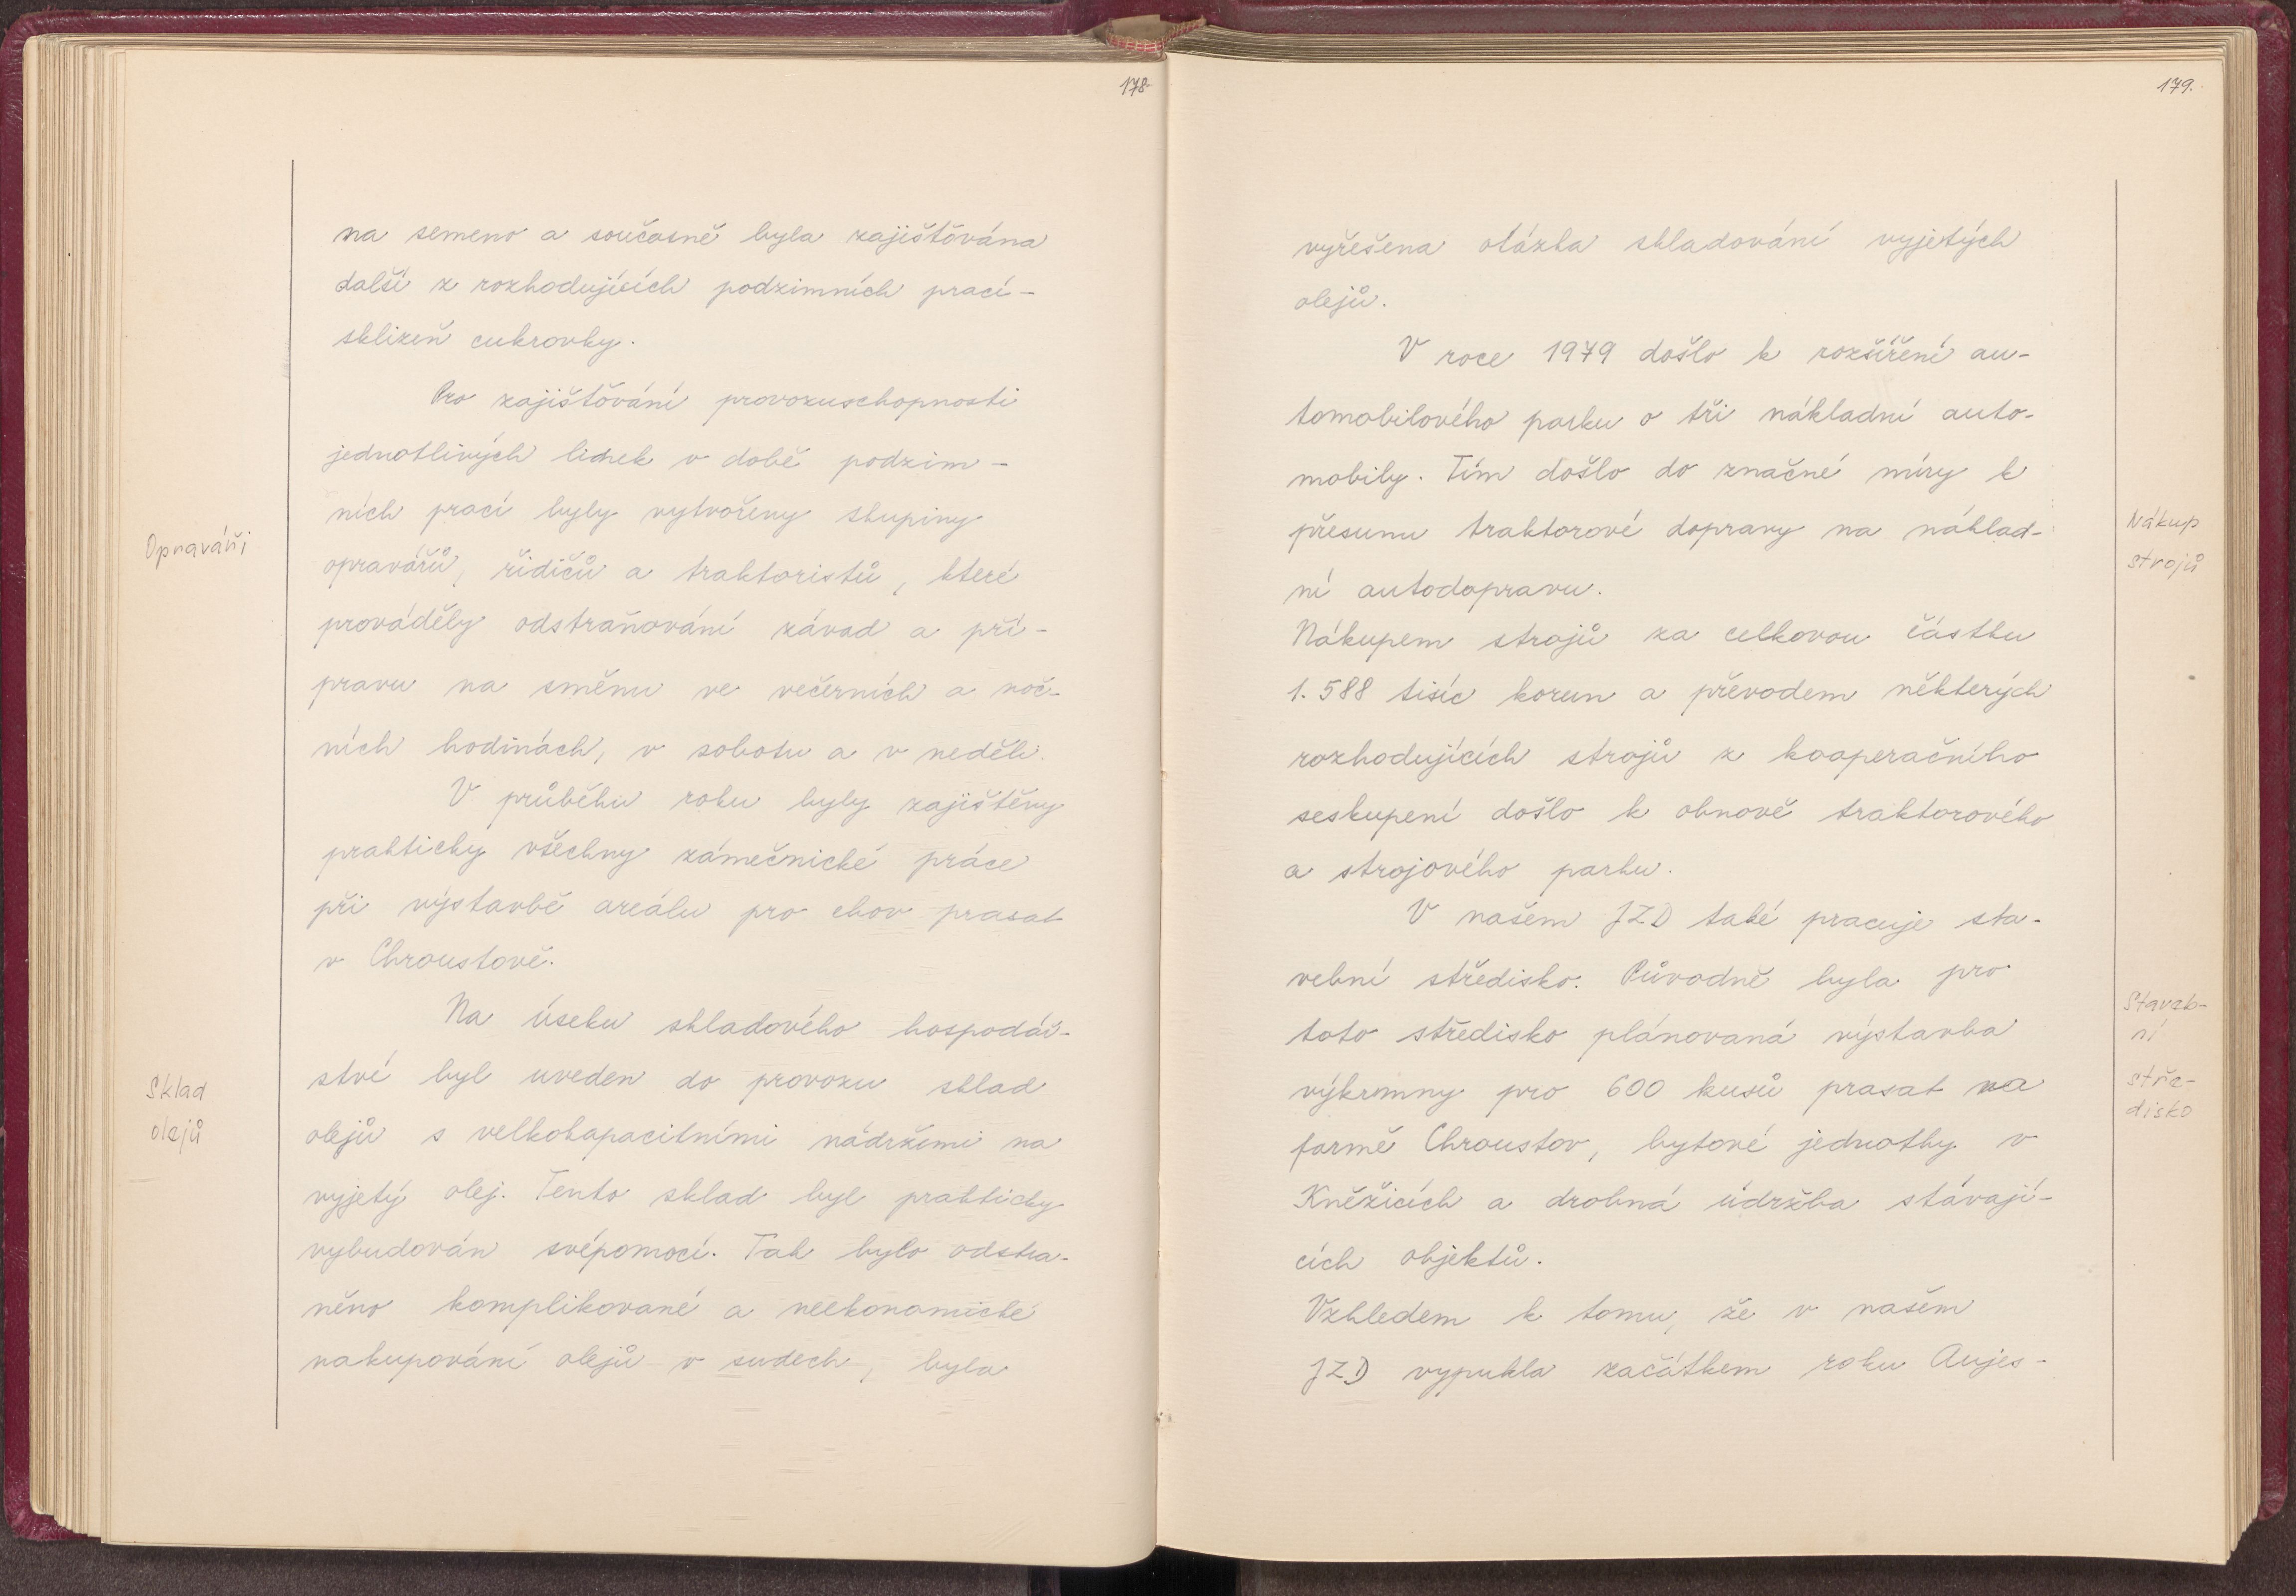 178.
na semeno a současně byla zajišťována
další z rozhodujících podzimních prací -
sklizeň cukrovky.
Pro zajišťování provozuschopnosti
jednotlivých linek v době podzim-
ních prací byly vytvořeny skupiny
Opraváři
opravářů, řidičů a traktoristů, které
prováděly odstraňování závad a pří-
pravu na směnu ve večerních a noč-
ních hodinách, v sobotu a v neděli.
V průběhu roku byly zajištěny
prakticky všechny zámečnické práce
při výstavbě areálu pro chov prasat
v Chroustově.
Na úseku skladového hospodář-
ství byl uveden do provozu sklad
Sklad
olejů
olejů s velkokapacitními nádržemi na
vyjetý olej. Tento sklad byl prakticky
vybudován svépomocí. Tak bylo odstra-
něno komplikované a neekonomické
nakupování olejů v sudech, byla
179.
vyřešena otázka skladování vyjetých
olejů.
V roce 1979 došlo k rozšíření au-
tomobilového parku o tři nákladní auto-
mobily. Tím došlo do značné míry k
přesunu traktorové dopravy na náklad-
ní autodopravu.
Nákup
strojů
Nákupem strojů za celkovou částku
1.588 tisíc korun a převodem některých
rozhodujících strojů z kooperačního
seskupení došlo k obnově traktorového
a strojového parku.
V našem JZD také pracuje sta-
vební středisko. Původně byla pro
Staveb-
ní
stře-
disko
toto středisko plánovaná výstavba
výkrmny pro 600 kusů prasat na
farmě Chroustov, bytové jednotky v
Kněžicích a drobná údržba stávají-
cích objektů.
Vzhledem k tomu, že v našem
JZD vypukla začátkem roku Aujes-